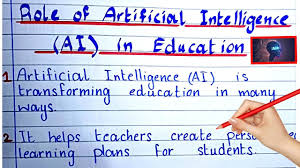 Role of Artificial Intelligence
(AI) in Education
1 Artificial Intelligence (AI) is
transforming education in many
ways.
2 It helps teachers create
learning plans for students.